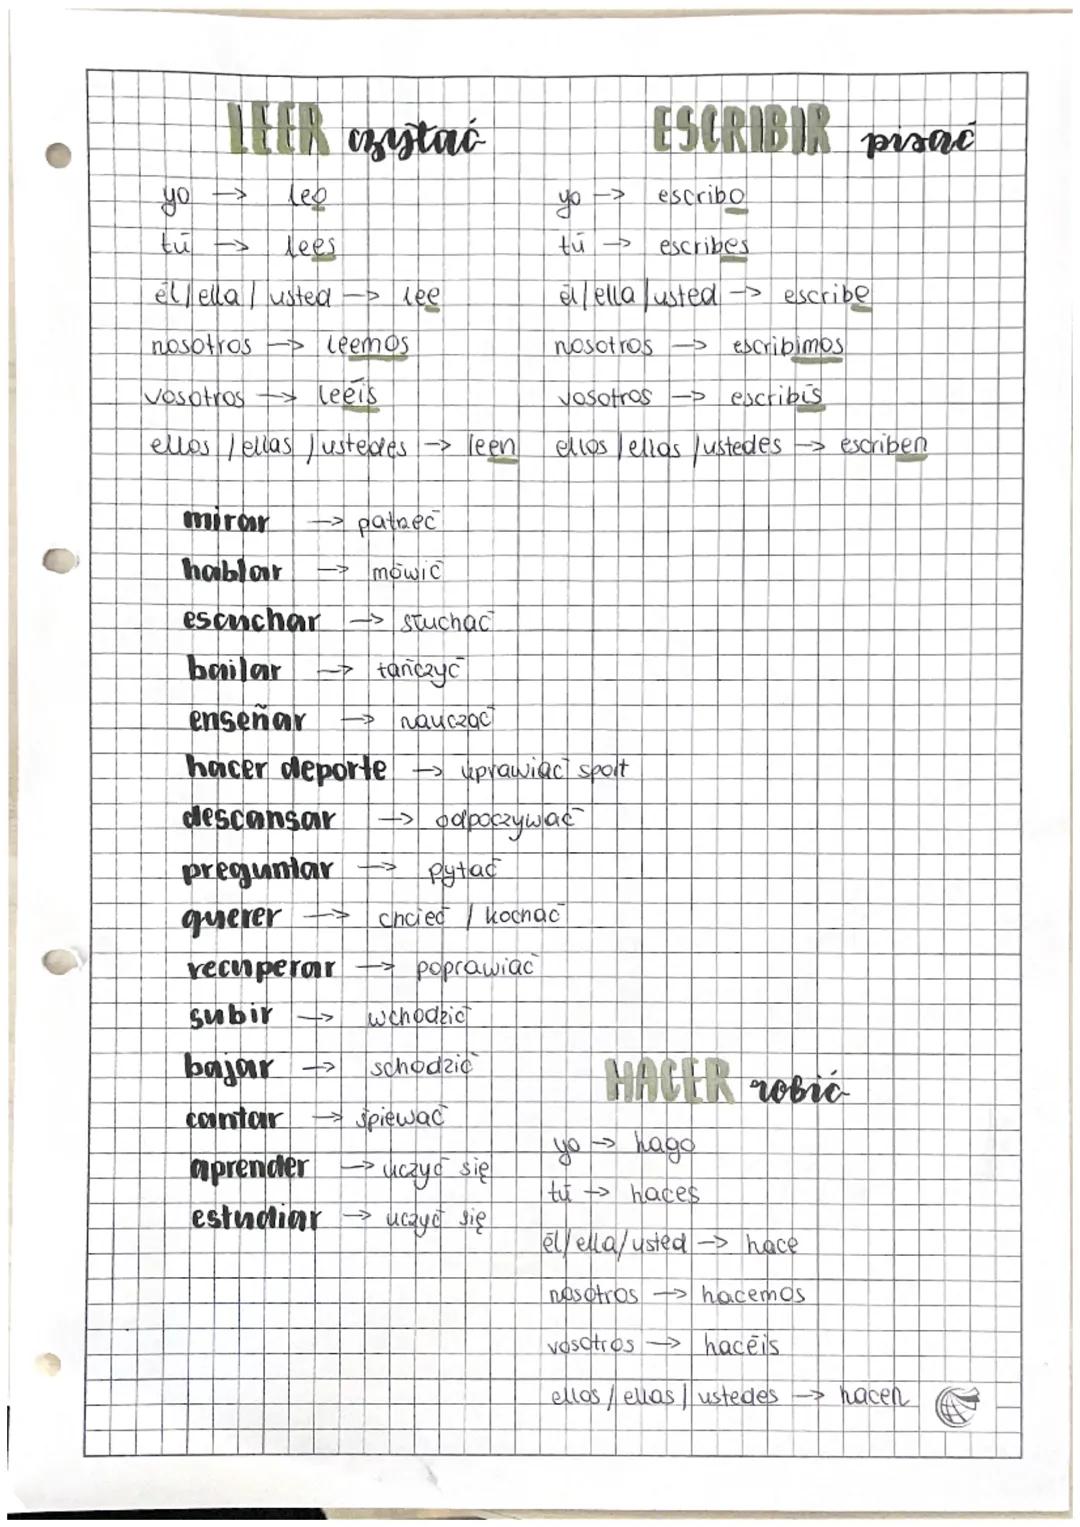 LEER czytać
yo → leo
tú → lees
él/ella/usted → lee
nosotros → leemos
vosotros → leéis
ellos/ellas/ustedes → leen
ESCRIBIR pisać
yo → escribo
tú → escribes
él/ella/usted → escribe
nosotros → escribimos
vosotros → escribís
ellos/ellas/ustedes → escriben
mirar → patrzeć
hablar → mówić
escuchar → słuchać
bailar → tańczyć
enseñar → nauczać
hacer deporte → uprawiać sport
descansar → odpoczywać
preguntar → pytać
querer → chcieć / kochać
recuperar → poprawiać
subir → wchodzić
bajar → schodzić
cantar → śpiewać
aprender → uczyć się
estudiar → uczyć się
HACER robić
yo → hago
tú → haces
él/ella/usted → hace
nosotros → hacemos
vosotros → hacéis
ellos/ellas/ustedes → hacen